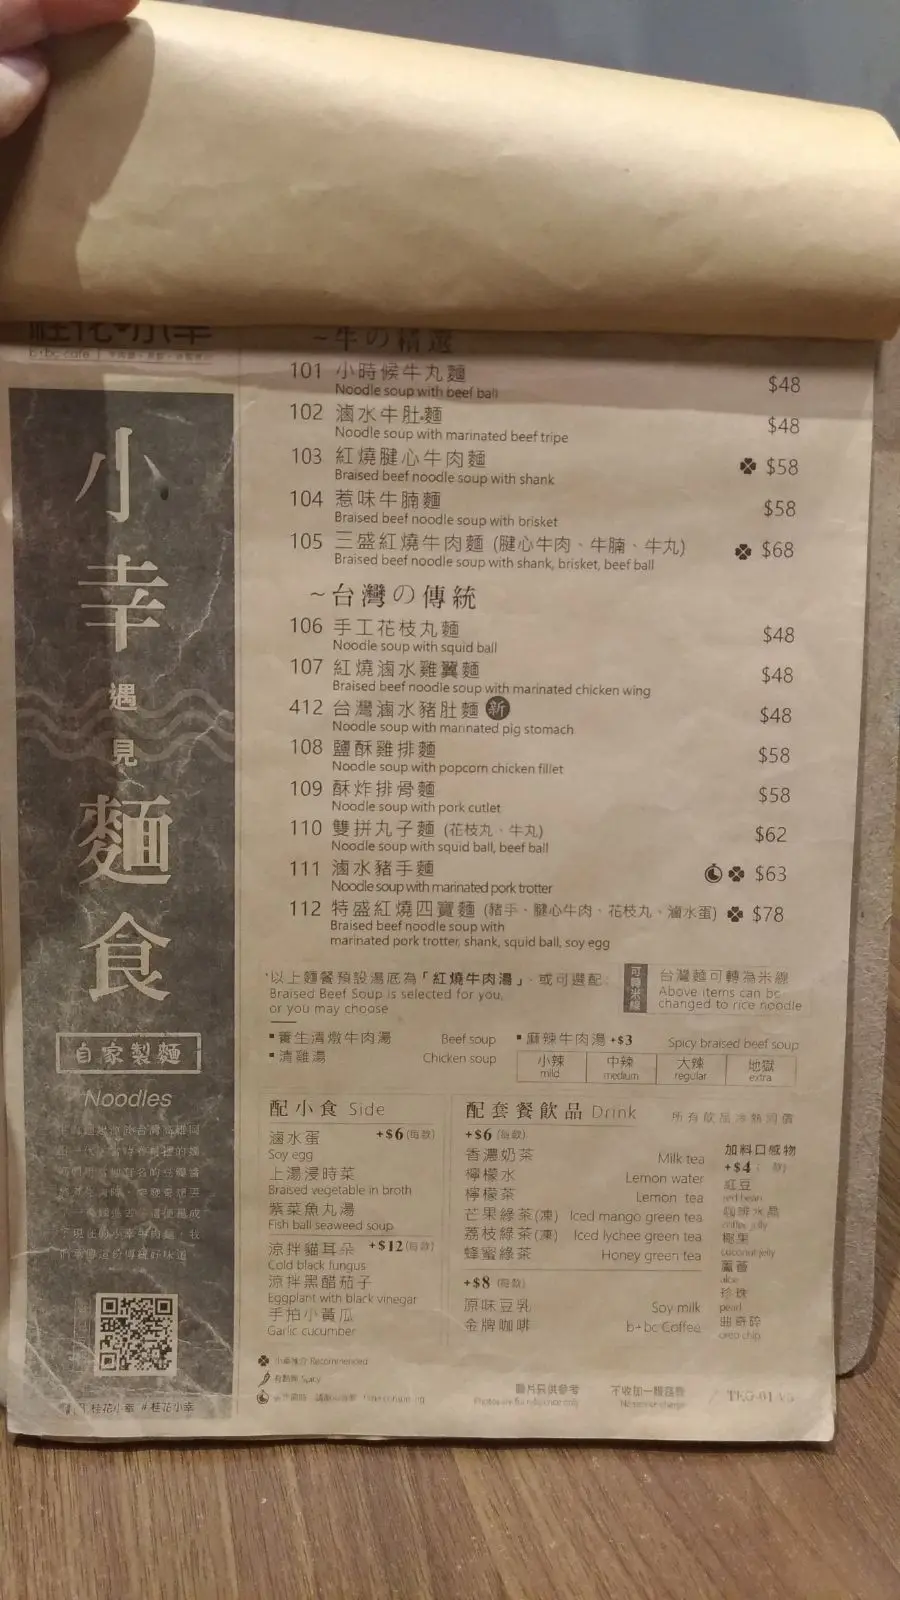 桂花·小幸
b+bc cafe
~牛の精選
101 小時候牛丸麵 $48
Noodle soup with beef ball
102 滷水牛肚麵 $48
Noodle soup with marinated beef tripe
103 紅燒腱心牛肉麵 $58
Braised beef noodle soup with shank
104 惹味牛腩麵 $58
Braised beef noodle soup with brisket
105 三盛紅燒牛肉麵 (腱心牛肉、牛腩、牛丸) $68
Braised beef noodle soup with shank, brisket, beef ball
~台灣の傳統
106 手工花枝丸麵 $48
Noodle soup with squid ball
107 紅燒滷水雞翼麵 $48
Braised beef noodle soup with marinated chicken wing
412 台灣滷水豬肚麵 新 $48
Noodle soup with marinated pig stomach
108 鹽酥雞排麵 $58
Noodle soup with popcorn chicken fillet
109 酥炸排骨麵 $58
Noodle soup with pork cutlet
110 雙拼丸子麵 (花枝丸、牛丸) $62
Noodle soup with squid ball, beef ball
111 滷水豬手麵 $63
Noodle soup with marinated pork trotter
112 特盛紅燒四寶麵 (豬手、腱心牛肉、花枝丸、滷水蛋) $78
Braised beef noodle soup with
marinated pork trotter, shank, squid ball, soy egg
以上麵餐預設湯底為「紅燒牛肉湯」，或可選配:
Braised Beef Soup is selected for you,
or you may choose
可轉米線
台灣麵可轉為米線
Above items can be
changed to rice noodle
▪養生清燉牛肉湯 Beef soup
▪清雞湯 Chicken soup
▪麻辣牛肉湯 +$3 Spicy braised beef soup
小辣 中辣 大辣 地獄
mild medium regular extra
配小食 Side
滷水蛋 +$6 (每款)
Soy egg
上湯浸時菜
Braised vegetable in broth
紫菜魚丸湯
Fish ball seaweed soup
涼拌貓耳朵 +$12 (每款)
Cold black fungus
涼拌黑醋茄子
Eggplant with black vinegar
手拍小黃瓜
Garlic cucumber
配套餐飲品 Drink 所有飲品冷熱同價
+$6 (每款)
香濃奶茶 Milk tea
檸檬水 Lemon water
檸檬茶 Lemon tea
芒果綠茶(凍) Iced mango green tea
荔枝綠茶(凍) Iced lychee green tea
蜂蜜綠茶 Honey green tea
+$8 (每款)
原味豆乳 Soy milk
金牌咖啡 b+bc Coffee
加料口感物
+$4
紅豆
red bean
咖啡水晶
coffee jelly
椰果
coconut jelly
蘆薈
aloe
珍珠
pearl
曲奇碎
oreo chip
小幸推介 Recommended
Spicy
圖片只供參考
不收加一服務費
No service charge
小幸遇見麵食
自家製麵
Noodles
桂花小幸 #桂花小幸